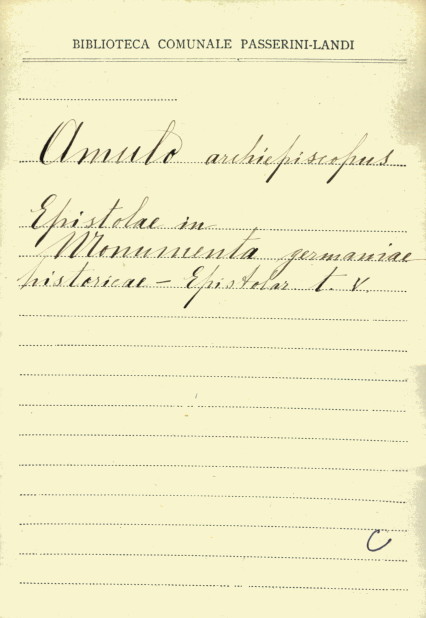 BIBLIOTECA COMUNALE PASSERINI-LANDI
Amulo archiepiscopus
Epistolae in
Monumenta germaniae
historicae - Epistolar t. V.
C